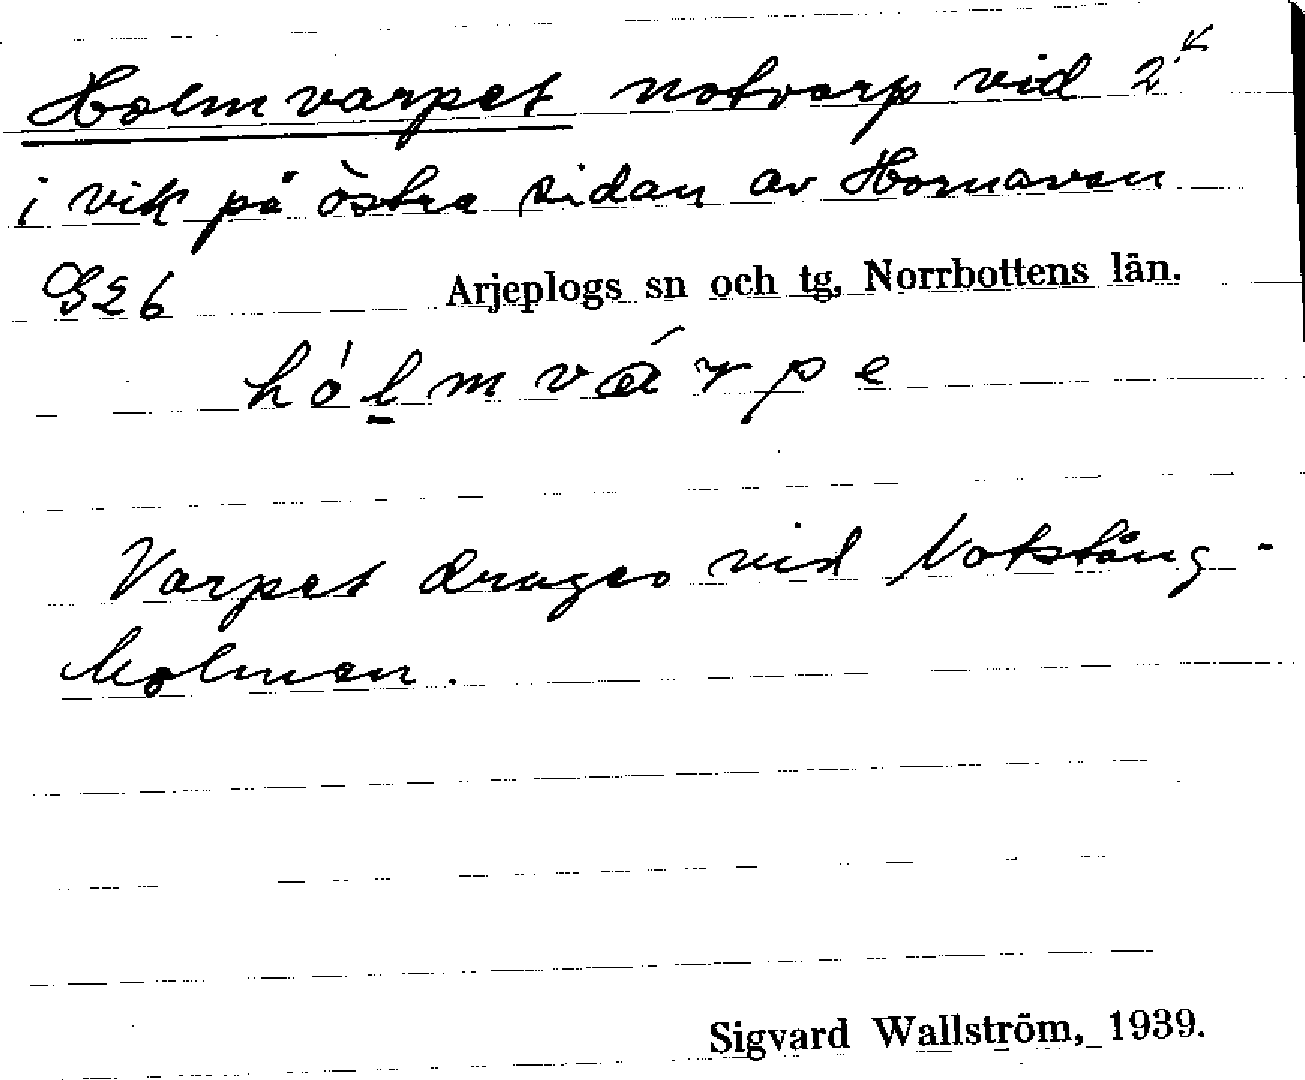 Holmvarpet notvarp vid 2
i vik på östra sidan av Hornavan
G2b Arjeplogs sn och tg, Norrbottens län.
hólmvárpe
Varpet drages vid Notstång-
holmen.
Sigvard Wallström, 1939.